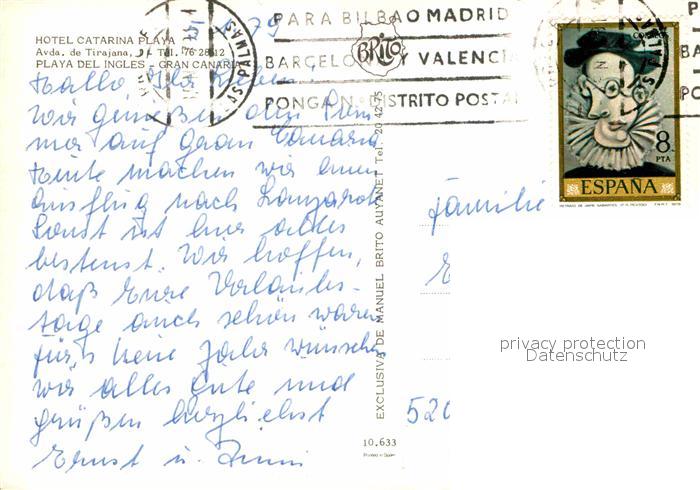 HOTEL CATARINA PLAYA
Avda. de Tirajana, 1 - Tel. 76 28 12
PLAYA DEL INGLES - GRAN CANARIA
79
PARA BILBAO MADRID
BARCELO Y VALENCIA
PONGAN DISTRITO POSTAL
BRITO
LAS PALMAS
CORREOS
8
PTA
ESPAÑA
Hallo Ihr Lieben!
Wir genießen den Som
mer auf Gran Canaria
Heute machen wir einen
Ausflug nach Lanzarote
Sonst ist hier alles
bestens. Wir hoffen,
daß Eure Urlaubs-
tage auch schön waren
für's neue Jahr wünschen
wir alles Gute und
grüßen herzlichst
Ernst u.
EXCLUSIVA DE MANUEL BRITO AUYANET Tel. 20 42 75
Familie
E
520
privacy protection
Datenschutz
10.633
Printed in Spain